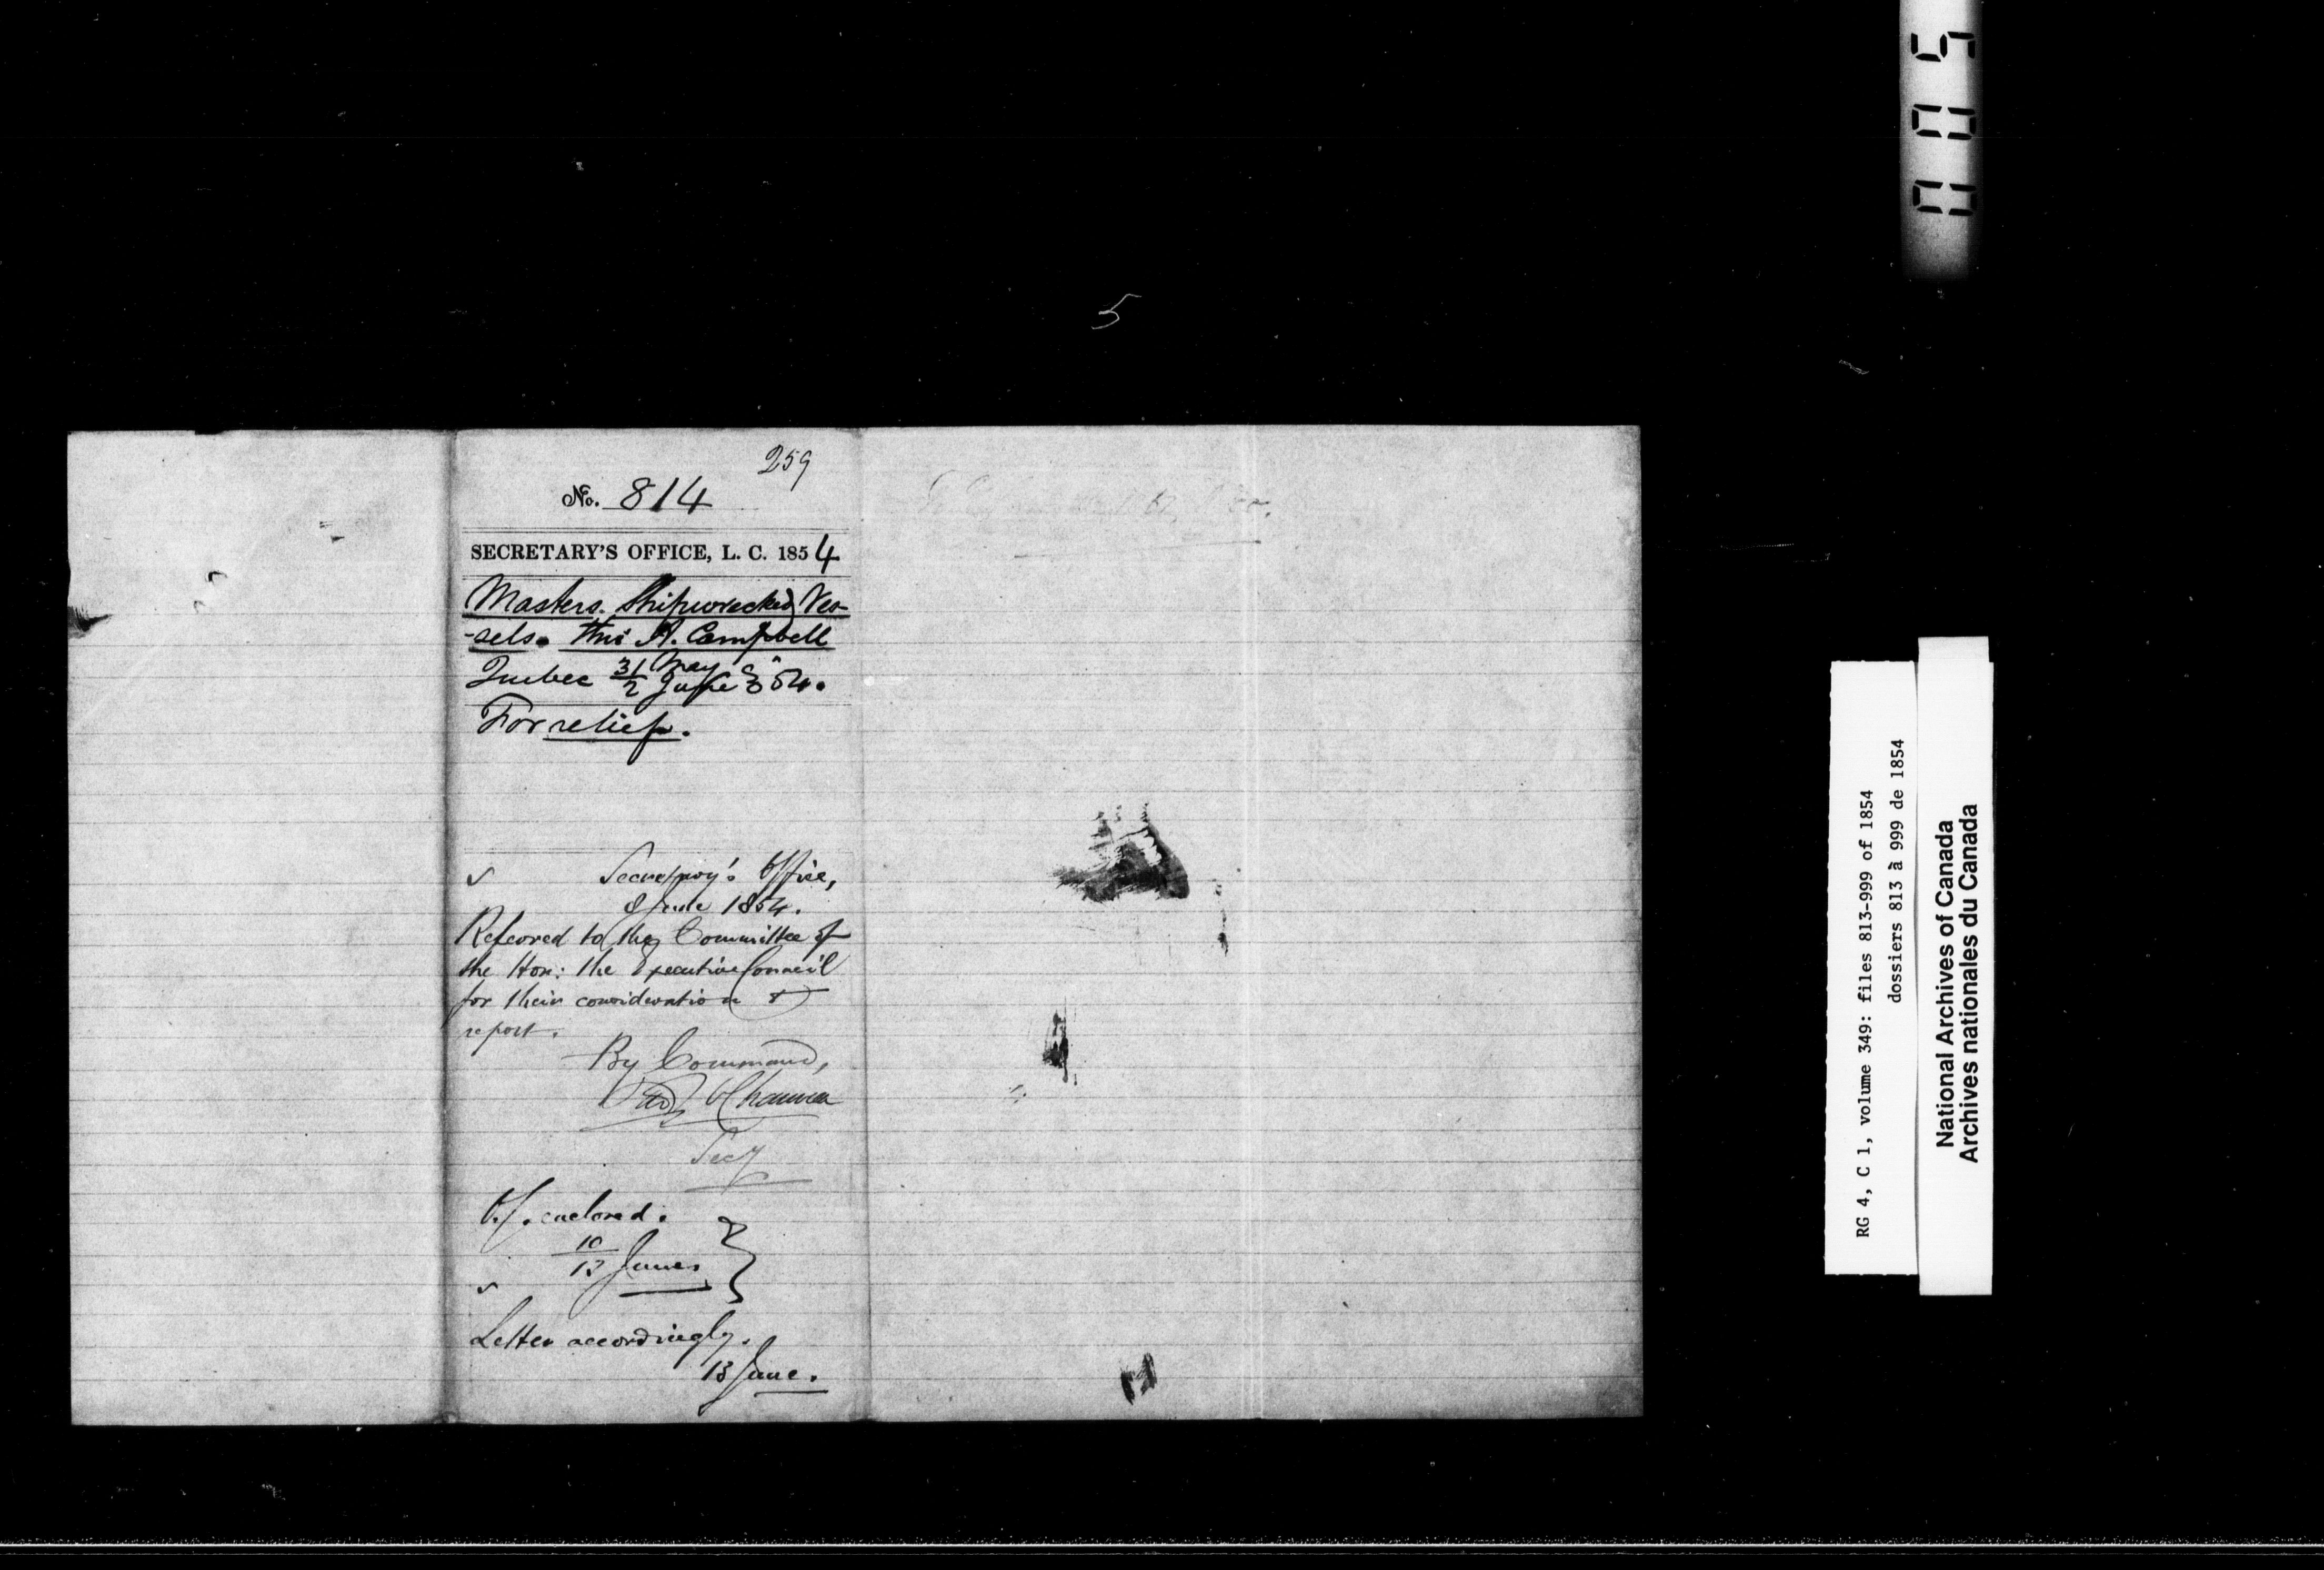 005
5
259
No. 814
SECRETARY'S OFFICE, L. C. 1854
Masters. Shipwrecked Ves-
-sels. thro' A. Campbell
Quebec 31/2 May/June 54.
For relief.
Secretary's Office,
8 June 1854.
Referred to the Committee of
the Hon: the Executive Council
for their consideration &
report.
By Command,
Chauveau
Secy
enclosed.
10/13 June.
Letter accordingly.
13 June.
RG 4, C 1, volume 349: files 813-999 of 1854
dossiers 813 à 999 de 1854
National Archives of Canada
Archives nationales du Canada